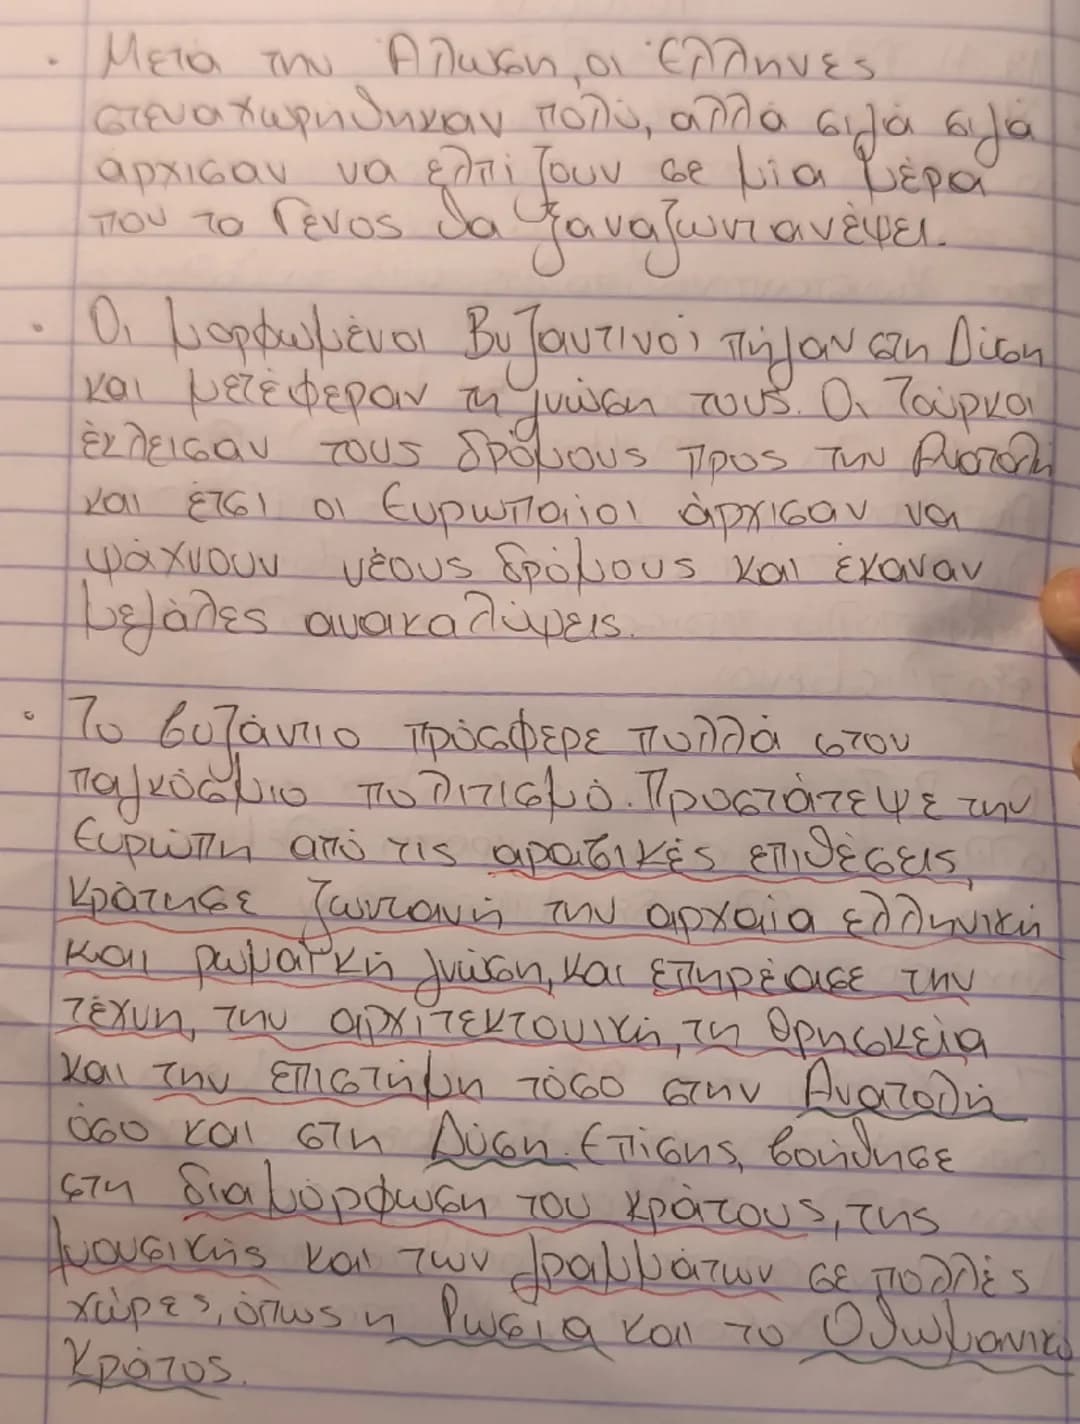 • Μετά την Άλωση, οι Έλληνες
στεναχωρήθηκαν πολύ, αλλά σιγά σιγά
άρχισαν να ελπίζουν σε μία μέρα
που το Γένος θα ξαναζωντανέψει.
• Οι μορφωμένοι Βυζαντινοί πήγαν στη Δύση
και μετέφεραν τη γνώση τους. Οι Τούρκοι
έκλεισαν τους δρόμους προς την Ανατολή
και έτσι οι Ευρωπαίοι άρχισαν να
ψάχνουν νέους δρόμους και έκαναν
μεγάλες ανακαλύψεις.
• Το βυζάντιο πρόσφερε πολλά στον
παγκόσμιο πολιτισμό. Προστάτεψε την
Ευρώπη από τις αραβικές επιθέσεις,
κράτησε ζωντανή την αρχαία ελληνική
και ρωμαϊκή γνώση, και επηρέασε την
τέχνη, την αρχιτεκτονική, τη θρησκεία
και την επιστήμη τόσο στην Ανατολή
όσο και στη Δύση. Επίσης, βοήθησε
στη διαμόρφωση του κράτους, της
μουσικής και των γραμμάτων σε πολλές
χώρες, όπως η Ρωσία και το Οθωμανικό
Κράτος.